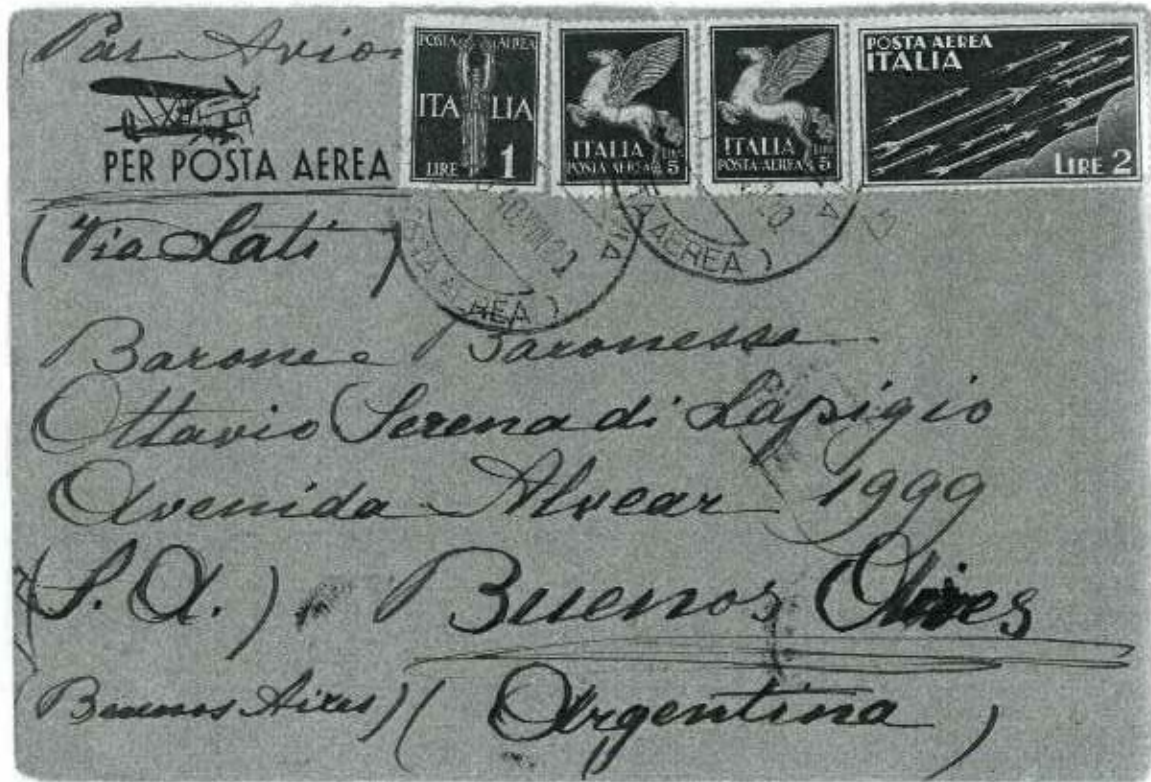 Par Avion
PER POSTA AEREA
(Via Lati)
POSTA AEREA
ITALIA
LIRE 1
ITALIA
POSTA AEREA LIRE 5
ITALIA
POSTA AEREA LIRE 5
POSTA AEREA
ITALIA
LIRE 2
POSTA AEREA)
TA AEREA)
Barone e Baronessa
Ottavio Serena di Lapigio
Avenida Alvear 1999
(S. A.) Buenos Aires
(Buenos Aires) (Argentina)